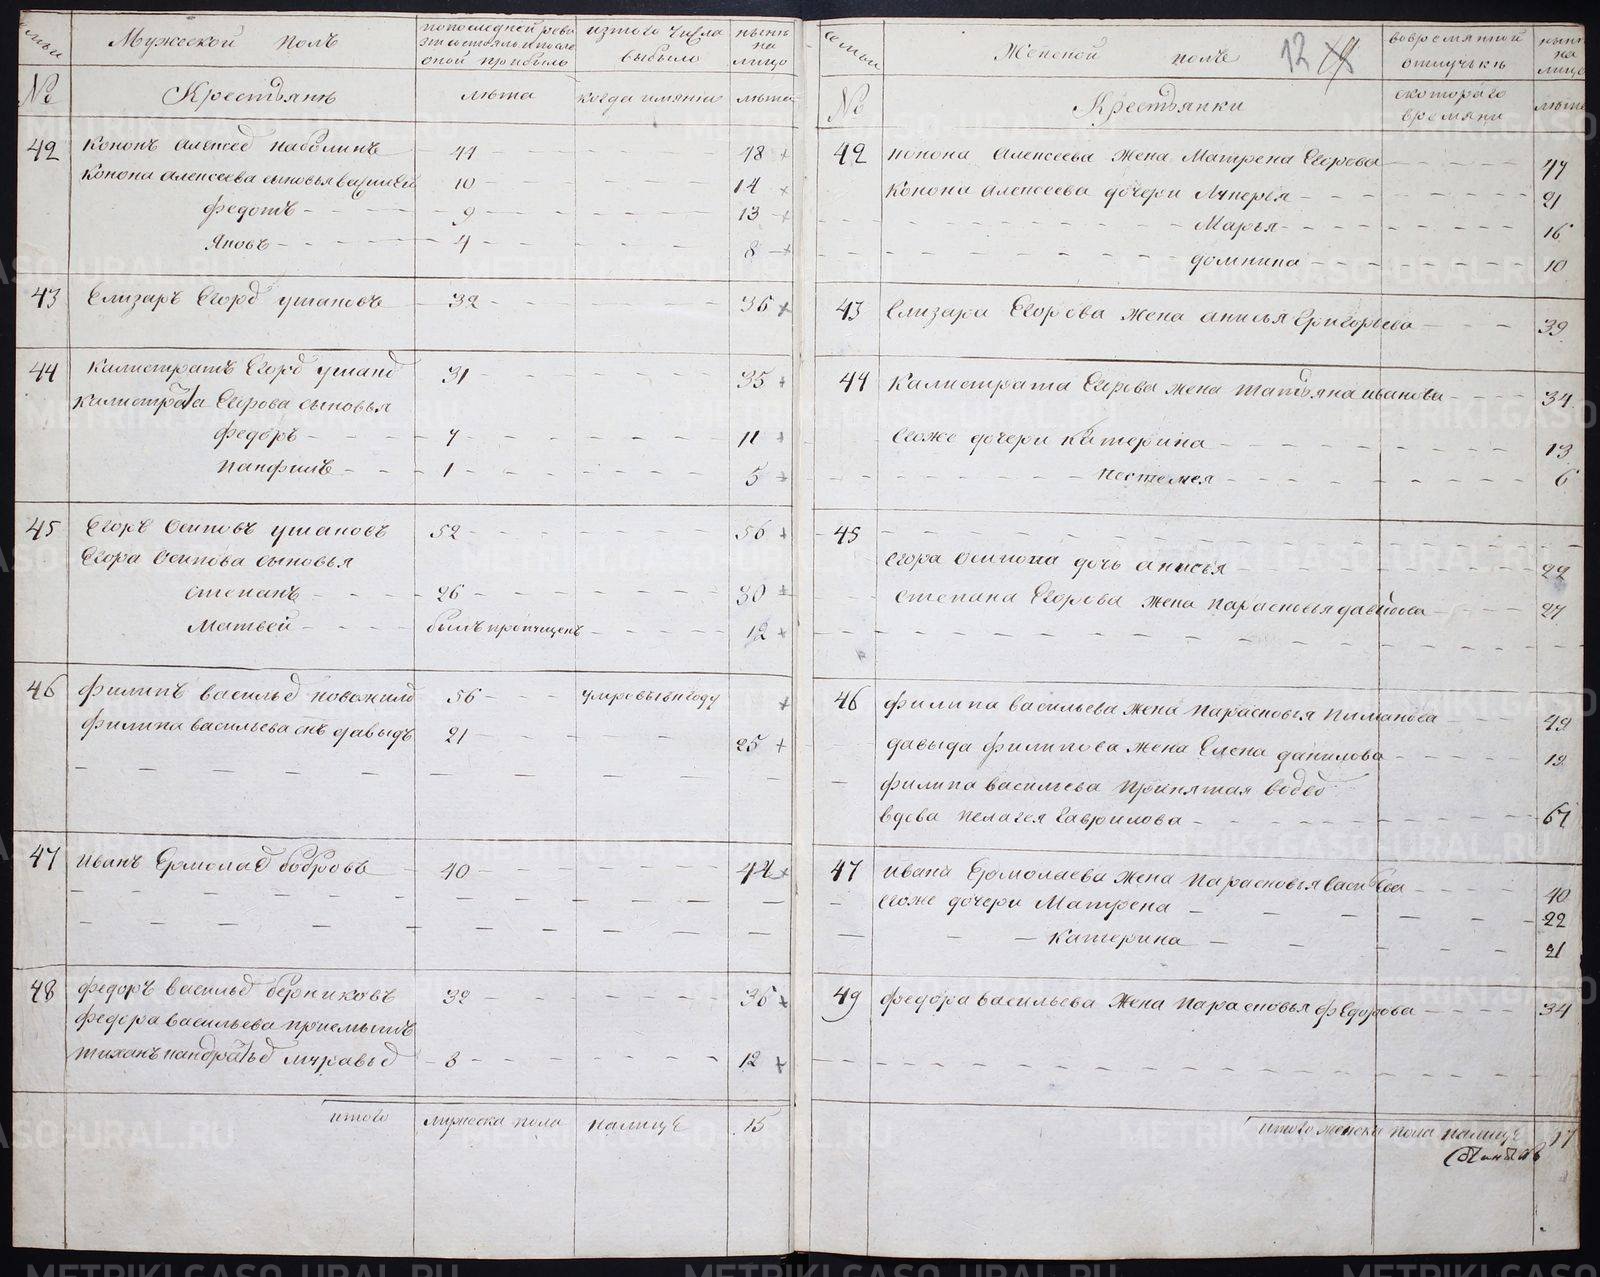 семьи
Мужеской полъ
попоследней реви
зіи состояло и после
оной прибыло
изтого числа
выбыло
нынѣ
на
лицо
№
Крестьянѣ
лѣта
когда имянно
лѣта
42
Кононъ Алексеев Наболинъ
44
48
Конона Алексеева сыновья Василей
10
14
Федотъ
9
13
Яковъ
4
8
43
Елизаръ Егоров Ушаковъ
32
36
44
Калистратъ Егоров Ушаков
31
35
Калистрата Егорова сыновья
Федоръ
7
11
Панфилъ
1
5
45
Егоръ Осиповъ Ушаковъ
52
56
Егора Осипова сыновья
Степанъ
26
30
Матвей
былъ пропущенъ
12
46
Филипъ Васильев Новожилов
56
умре въ году
Филипа Васильева снъ Давыдъ
21
25
47
Иванъ Ермолаев Бобровъ
40
44
48
Федоръ Васильев Берниковъ
32
36
Федора Васильева приемышъ
Тиханъ Кандратьев Муравьев
8
12
итого
мужеска пола
налице
15
семьи
Женской полъ
12
вовремянной
отлучькѣ
нынѣ
на
лицо
№
Крестьянки
скотораго
времяни
лѣта
42
Конона Алексеева жена Матрена Егорова
47
Конона Алексеева дочери Лукерья
21
Марья
16
Домнина
10
43
Елизара Егорова жена Анилья Григорьева
39
44
Калистрата Егорова жена Татьяна Иванова
34
Егоже дочери Катерина
13
Нестемея
6
45
Егора Осипова дочь Анисья
22
Степана Егорова жена Парасковья Давыдова
27
46
Филипа Васильева жена Парасковья Пиманова
49
Давыда Филипова жена Елена Данилова
19
Филипа Васильева принятая
вдева Пелагея Гаврилова
67
47
Ивана Ермолаева жена Парасковья Васильева
40
Егоже дочери Матрена
22
Катерина
21
49
Федора Васильева жена Парасковья Федорова
34
итого женска пола налице
17